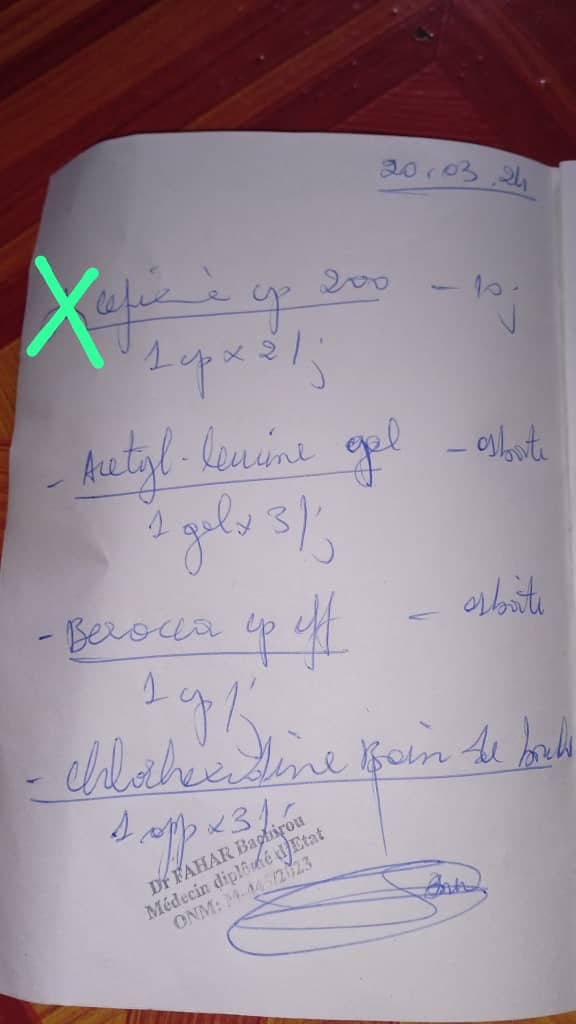 20.03.24
cp 200 - 10j
1 cp x 2/j
- Acetyl-leucine gel - 01 boîte
1 gel x 3/j
- Berocca cp eff - 01 boîte
1 cp/j
- Chlorhexidine Bain de bouche
1 app x 3/j
Dr FAHAR Bachirou
Médecin diplômé d'Etat
ONM: M-445/2023